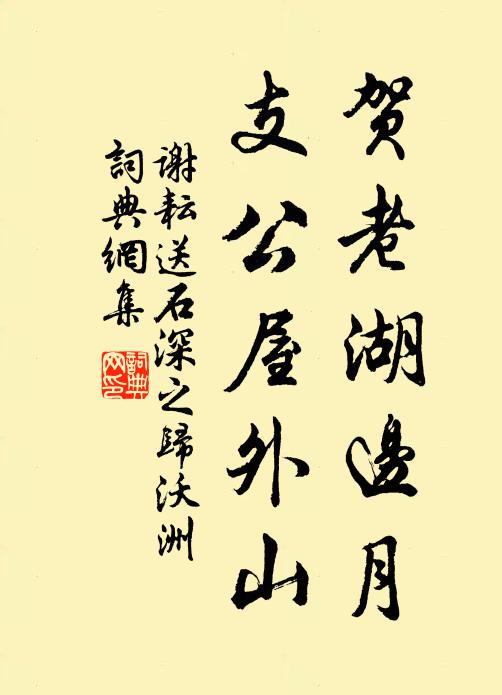 贺老湖邊月
支公屋外山
谢耘送石深之歸沃洲
詞典網集
詞典
网印